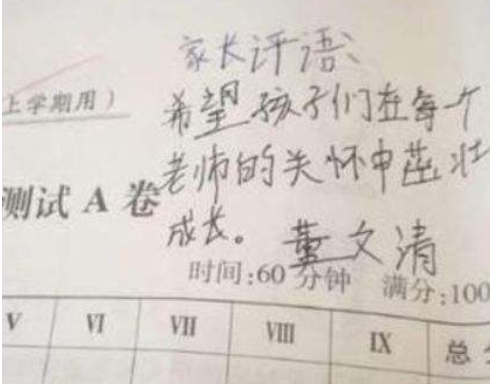 家长评语:
上学期用）
希望孩子们在每个
老师的关怀中茁壮
测试 A 卷
成长。董文清
时间:60 分钟 满分:100
V VI VII VIII IX 总